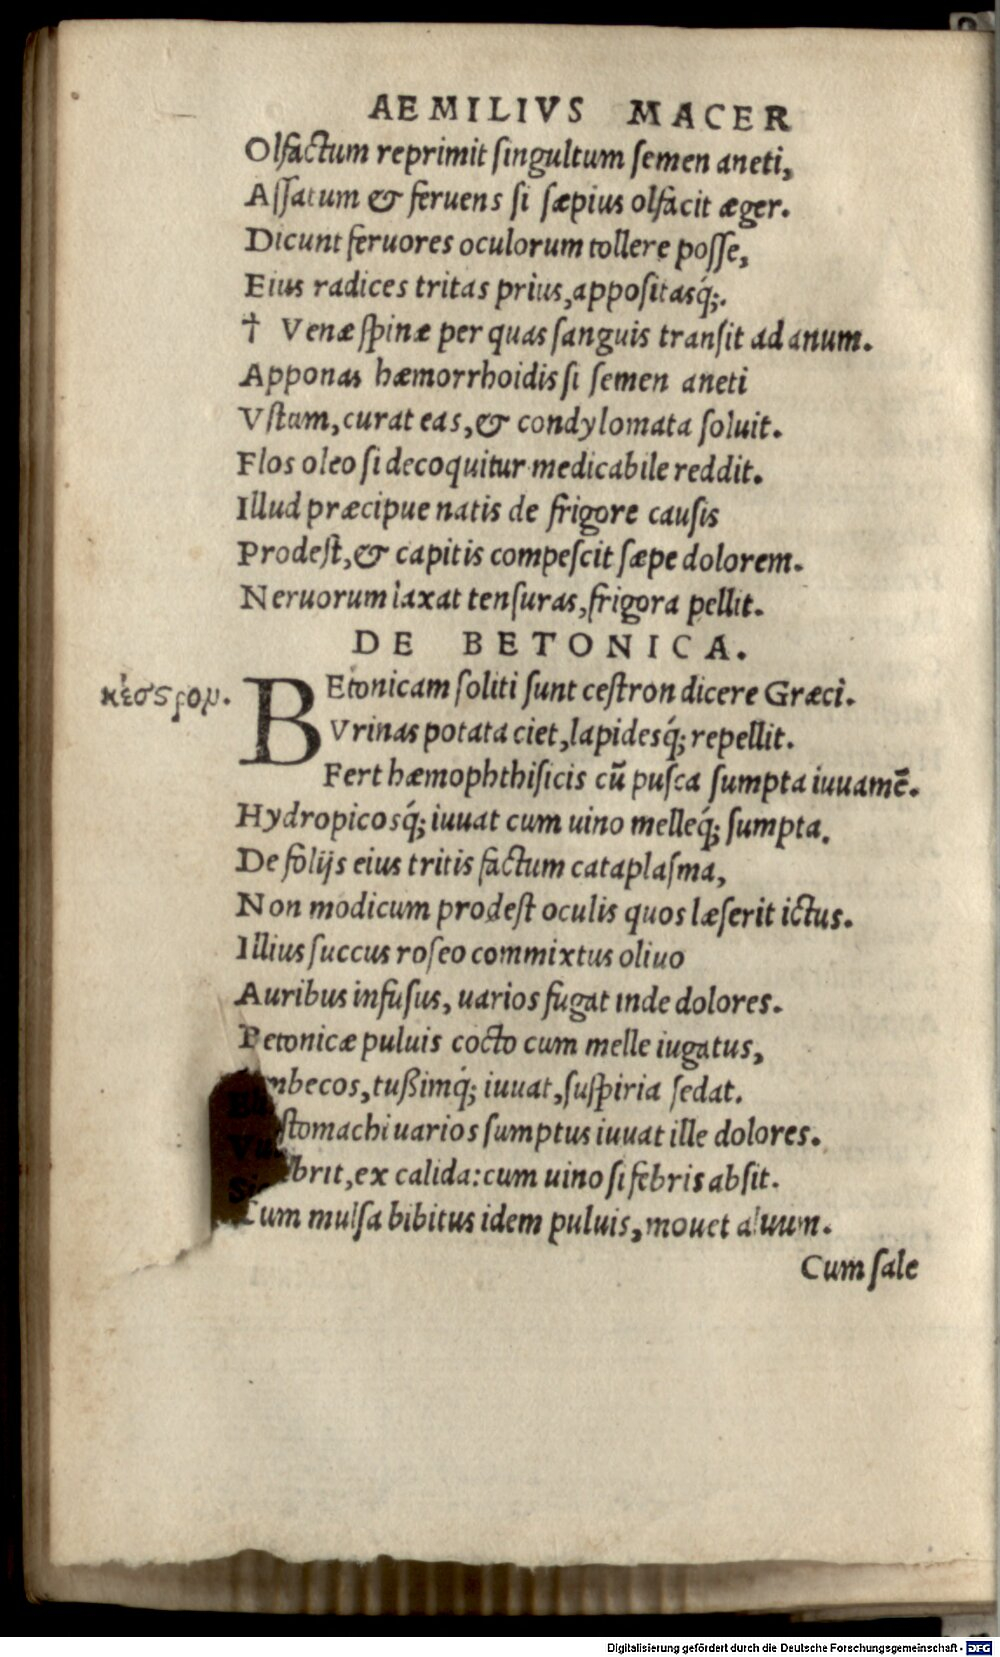 AEMILIVS MACER
Olfactum reprimit ſingultum ſemen aneti,
Aſſatum & feruens ſi ſæpius olfacit æger.
Dicunt feruores oculorum tollere poſſe,
Eius radices tritas prius, appoſitasq́;.
† Venæ ſpinæ per quas ſanguis tranſit ad anum.
Apponas hæmorrhoidis ſi ſemen aneti
Vſtum, curat eas, & condylomata ſoluit.
Flos oleo ſi decoquitur medicabile reddit.
Illud præcipue natis de frigore cauſis
Prodeſt, & capitis compeſcit ſæpe dolorem.
Neruorum laxat tenſuras, frigora pellit.
DE BETONICA.
BEtonicam ſoliti ſunt ceſtron dicere Græci.
Vrinas potata ciet, lapidesq́; repellit.
Fert hæmophthiſicis cū puſca ſumpta iuuamē.
Hydropicosq́; iuuat cum uino melleq́; ſumpta.
De folijs eius tritis factum cataplaſma,
Non modicum prodeſt oculis quos læſerit ictus.
Illius ſuccus roſeo commixtus oliuo
Auribus infuſus, uarios fugat inde dolores.
Betonicæ puluis cocto cum melle iugatus,
mbecos, tußimq́; iuuat, ſuſpiria ſedat.
ſtomachi uarios ſumptus iuuat ille dolores.
brit, ex calida: cum uino ſi febris abſit.
Cum mulſa bibitus idem puluis, mouet aluum.
Cum ſale
Digitalisierung gefördert durch die Deutsche Forschungsgemeinschaft - DFG